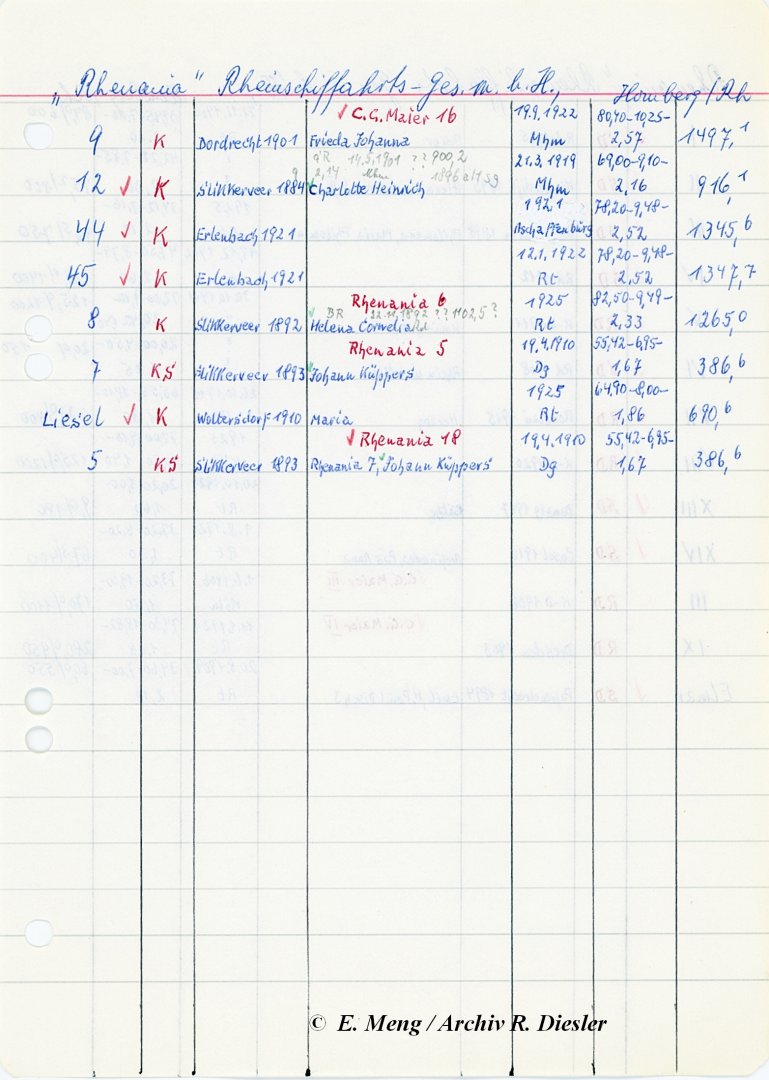 „Rhenania“ Rheinschiffahrts-Ges. m. b. H., Homberg/Rh
✓ C.G. Maier 16 19.9.1922 80,40-10,25-
9 K Dordrecht 1901 Frieda Johanna Mhm 2,57 1497,1
14.5.1901 ?? 900,2 21.3.1919 69,00-9,10-
2,14 Mhm ?? 1896
12 ✓ K Slikkerveer 1884 Charlotte Heinrich Mhm 2,16 916,1
1921 78,20-9,48-
44 ✓ K Erlenbach 1921 Aschaffenburg 2,52 1345,6
12.1.1922 78,20-9,48-
45 ✓ K Erlenbach 1921 Rt 2,52 1347,7
Rhenania 6 1925 82,50-9,49-
✓ BR 22.11.1892 ?? 1102,5 ?
8 K Slikkerveer 1892 Helena Cornelia Rt 2,33 1265,0
Rhenania 5 19.4.1910 55,42-6,95-
7 KS Slikkerveer 1893 Johann Küppers Dg 1,67 386,6
1925 64,90-8,00-
Liesel ✓ K Woltersdorf 1910 Maria Rt 1,86 690,6
✓ Rhenania 18 19.4.1910 55,42-6,95-
5 KS Slikkerveer 1893 Rhenania 7, Johann Küppers Dg 1,67 386,6
© E. Meng / Archiv R. Diesler